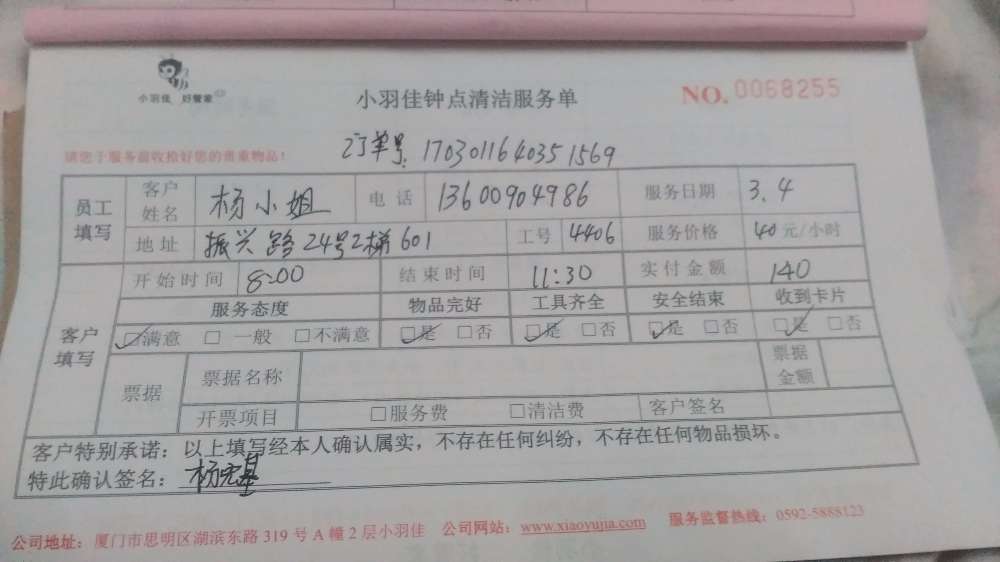 小羽佳 好管家
小羽佳钟点清洁服务单
NO. 0068255
请您于服务前收拾好您的贵重物品!
订单号: 170301164035 1569
员工填写 客户姓名 杨小姐 电话 13600904986 服务日期 3.4
地址 振兴路24号2梯601 工号 4406 服务价格 40元/小时
客户填写 开始时间 8:00 结束时间 11:30 实付金额 140
服务态度 物品完好 工具齐全 安全结束 收到卡片
☑满意 □一般 □不满意 ☑是 □否 ☑是 □否 ☑是 □否 ☑是 □否
票据 票据名称 票据金额
开票项目 □服务费 □清洁费 客户签名
客户特别承诺:以上填写经本人确认属实,不存在任何纠纷,不存在任何物品损坏。
特此确认签名:杨宏基
公司地址:厦门市思明区湖滨东路319号A幢2层小羽佳 公司网站:www.xiaoyujia.com 服务监督热线:0592-5888123